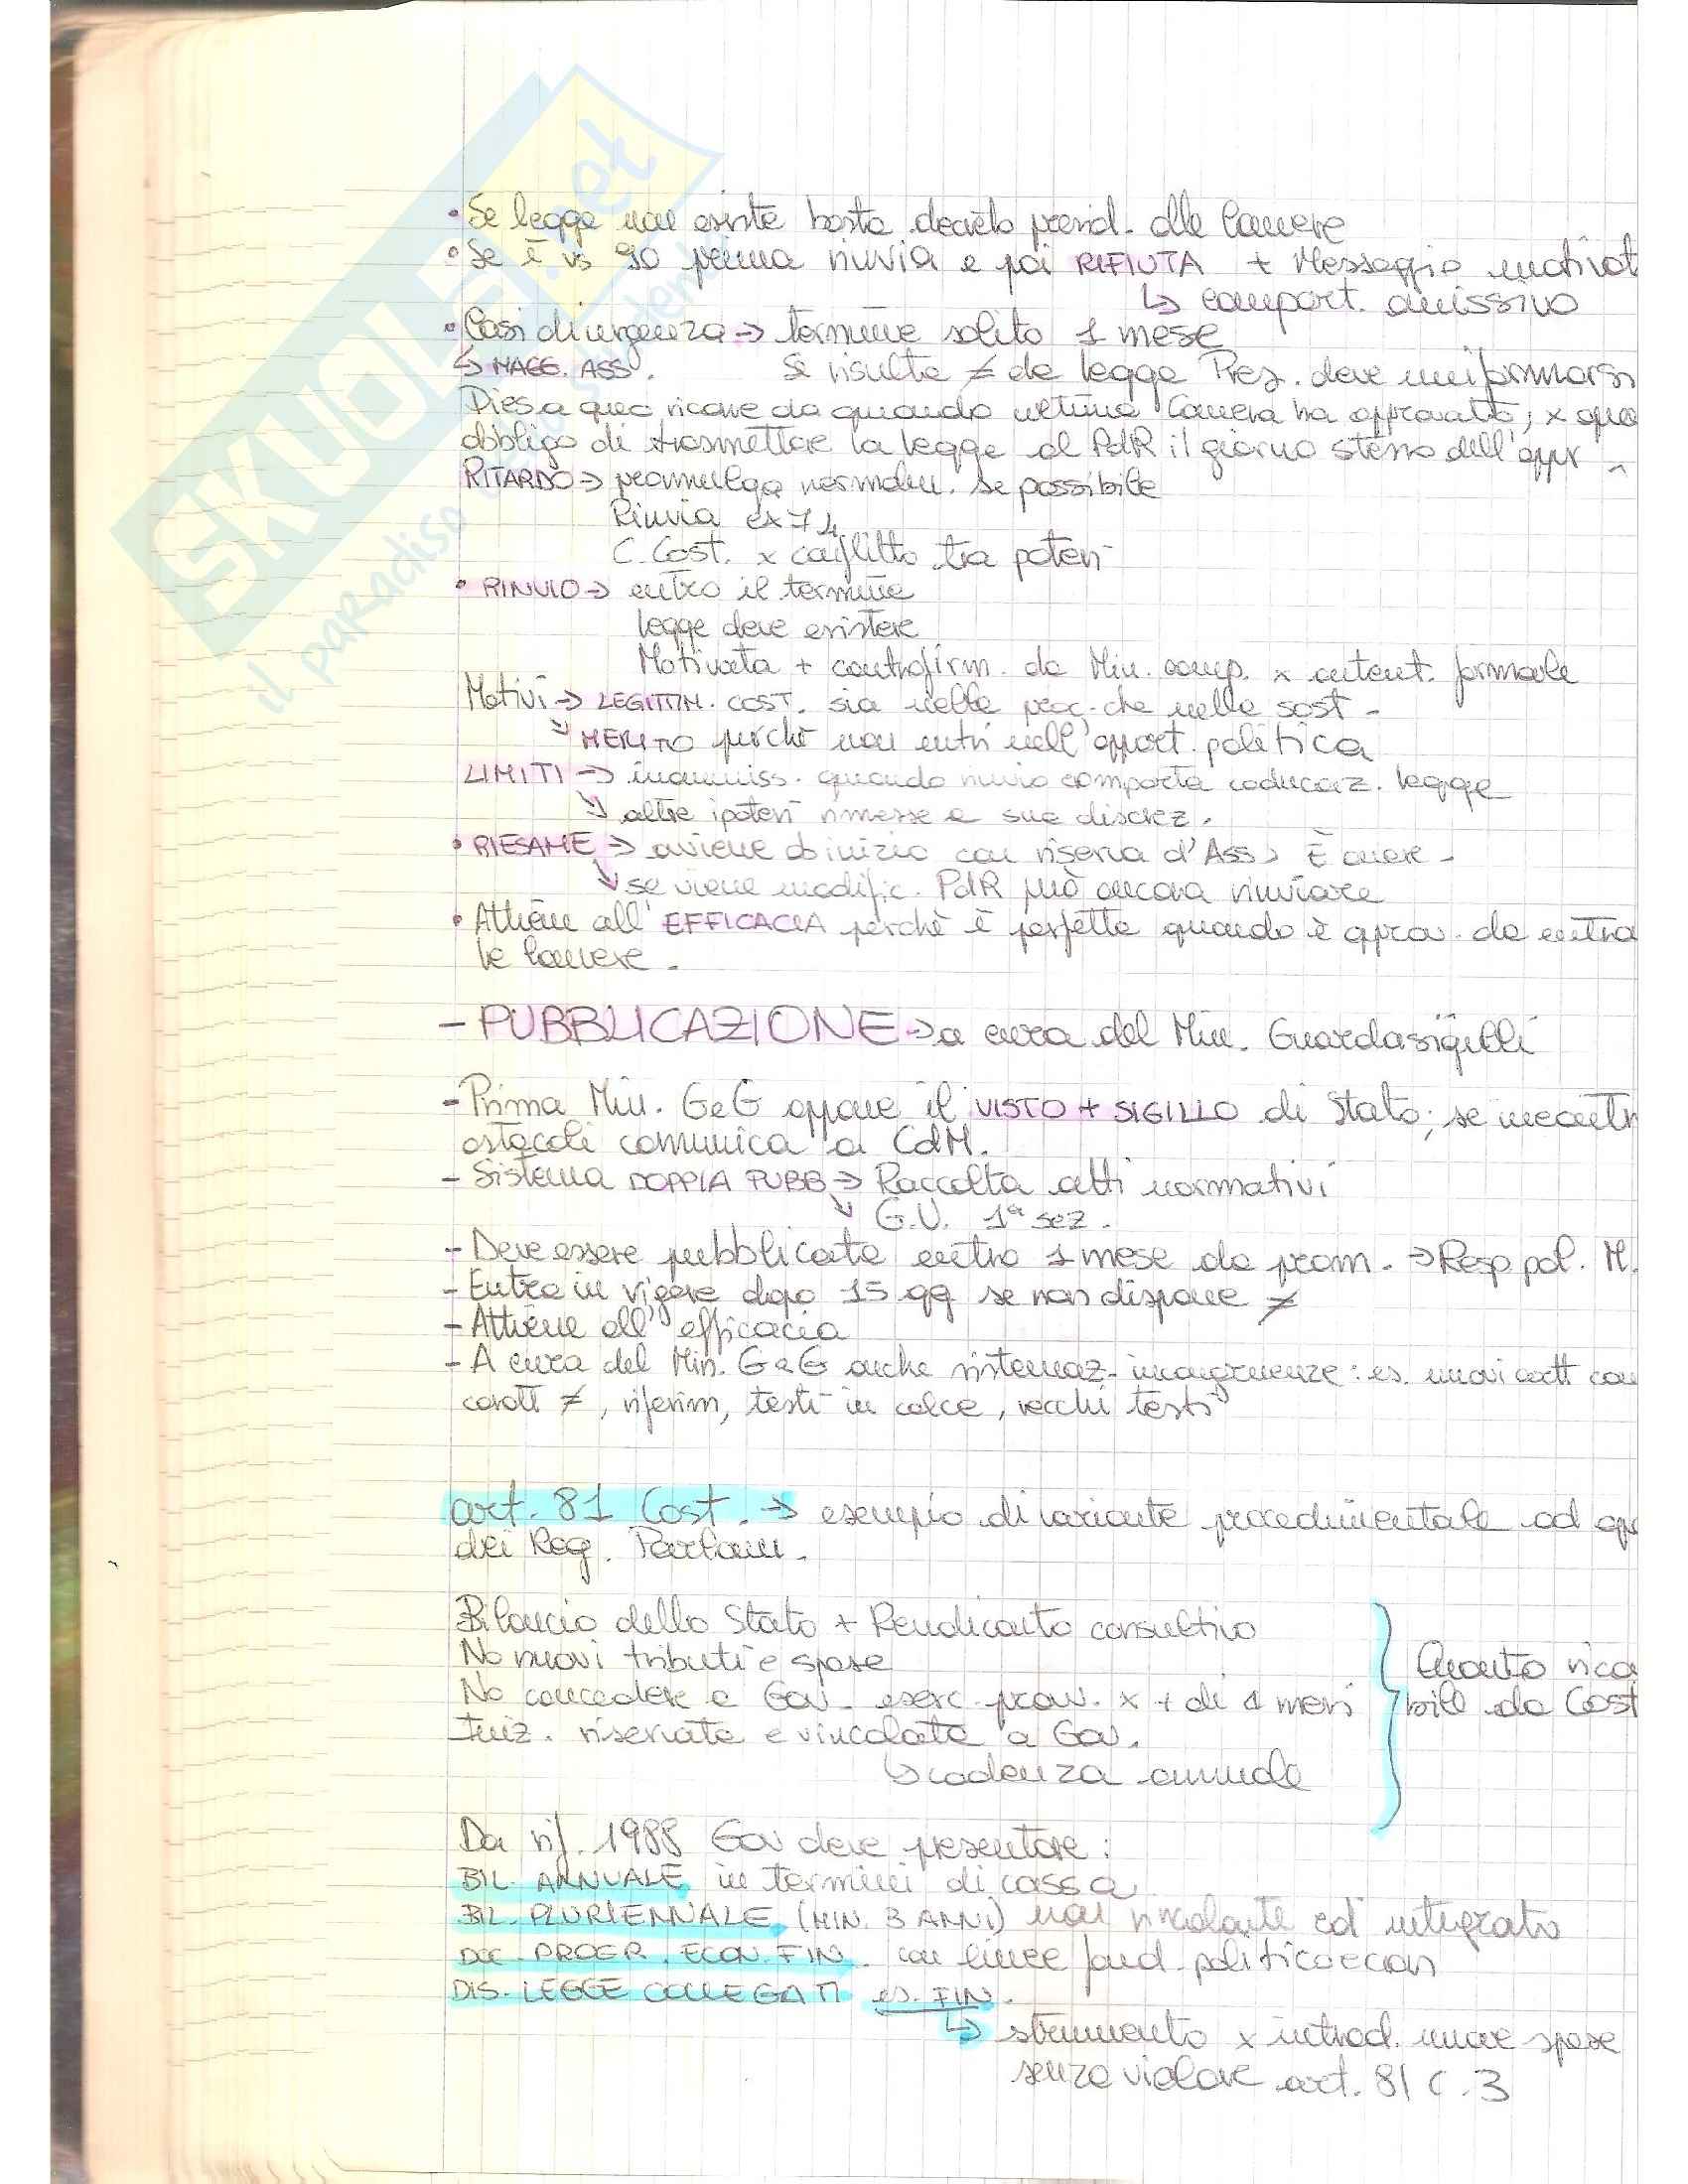 SKUOLA.net
il paradiso
• Se legge non esiste basta decreto presid. alle Camere
• Se è vs 90 prima rinvia e poi RIFIUTA + Messaggio motivat
↳ comport. omissivo
• Casi di urgenza → termine solito 1 mese
↳ MAGG. ASS. Se risulta ≠ da legge Prez. deve uniformarsi
Dies a quo ricorre da quando ultima Camera ha approvato; x ques
obbligo di trasmettere la legge al PdR il giorno stesso dell'appr
RITARDO → promulga normalm. se possibile
Rinvia ex 74
C. Cost. x conflitto tra poteri
• RINVIO → entro il termine
legge deve esistere
Motivata + controfirm. da Min. comp. x autent. formale
Motivi → LEGITTIM. COST. sia nella proc. che nella sost.
↘ MERITO perché non entri nell'opport. politica
LIMITI → inammiss. quando rinvio comporta caducaz. legge
↘ altre ipotesi rimesse a sua discrez.
• RIESAME → avviene ab inizio con riserva d'Ass.
↘ se viene modific. PdR può ancora rinviare
• Attiene all'EFFICACIA perchè è perfetta quando è aprov. da entra
le Camere.
- PUBBLICAZIONE → a cura del Min. Guardasigilli
- Prima Min. GeG appone il VISTO + SIGILLO di Stato; se incontr
ostacoli comunica a CdM.
- Sistema DOPPIA PUBB → Raccolta atti normativi
↘ G.U. 1ª sez.
- Deve essere pubblicata entro 1 mese da prom. → Resp pol. M.
- Entra in vigore dopo 15 gg se non dispone ≠
- Attiene all'efficacia
- A cura del Min. GeG anche sistemaz. incongruenze: es. nuovi con
caratt ≠, riferim, testi in calce, vecchi testi
art. 81 Cost. → esempio di variante procedimentale ad op
dei Reg. Parlam.
Bilancio dello Stato + Rendiconto consultivo
No nuovi tributi e spese
No concedere a Gov. eserc. prov. x + di 4 mesi
Iniz. riservata e vincolata a Gov.
↳ cadenza annuale
Quanto rica
bill da Cost
Da rif. 1988 Gov deve presentare:
BIL. ANNUALE in termini di cassa
BIL. PLURIENNALE (MIN. 3 ANNI) non vincolante ed integrato
DOC. PROGR. ECON. FIN. con linee fond. politicoecon
DIS. LEGGE COLLEGATI es. FIN.
↳ strumento x introd. nuove spese
senza violare art. 81 c. 3